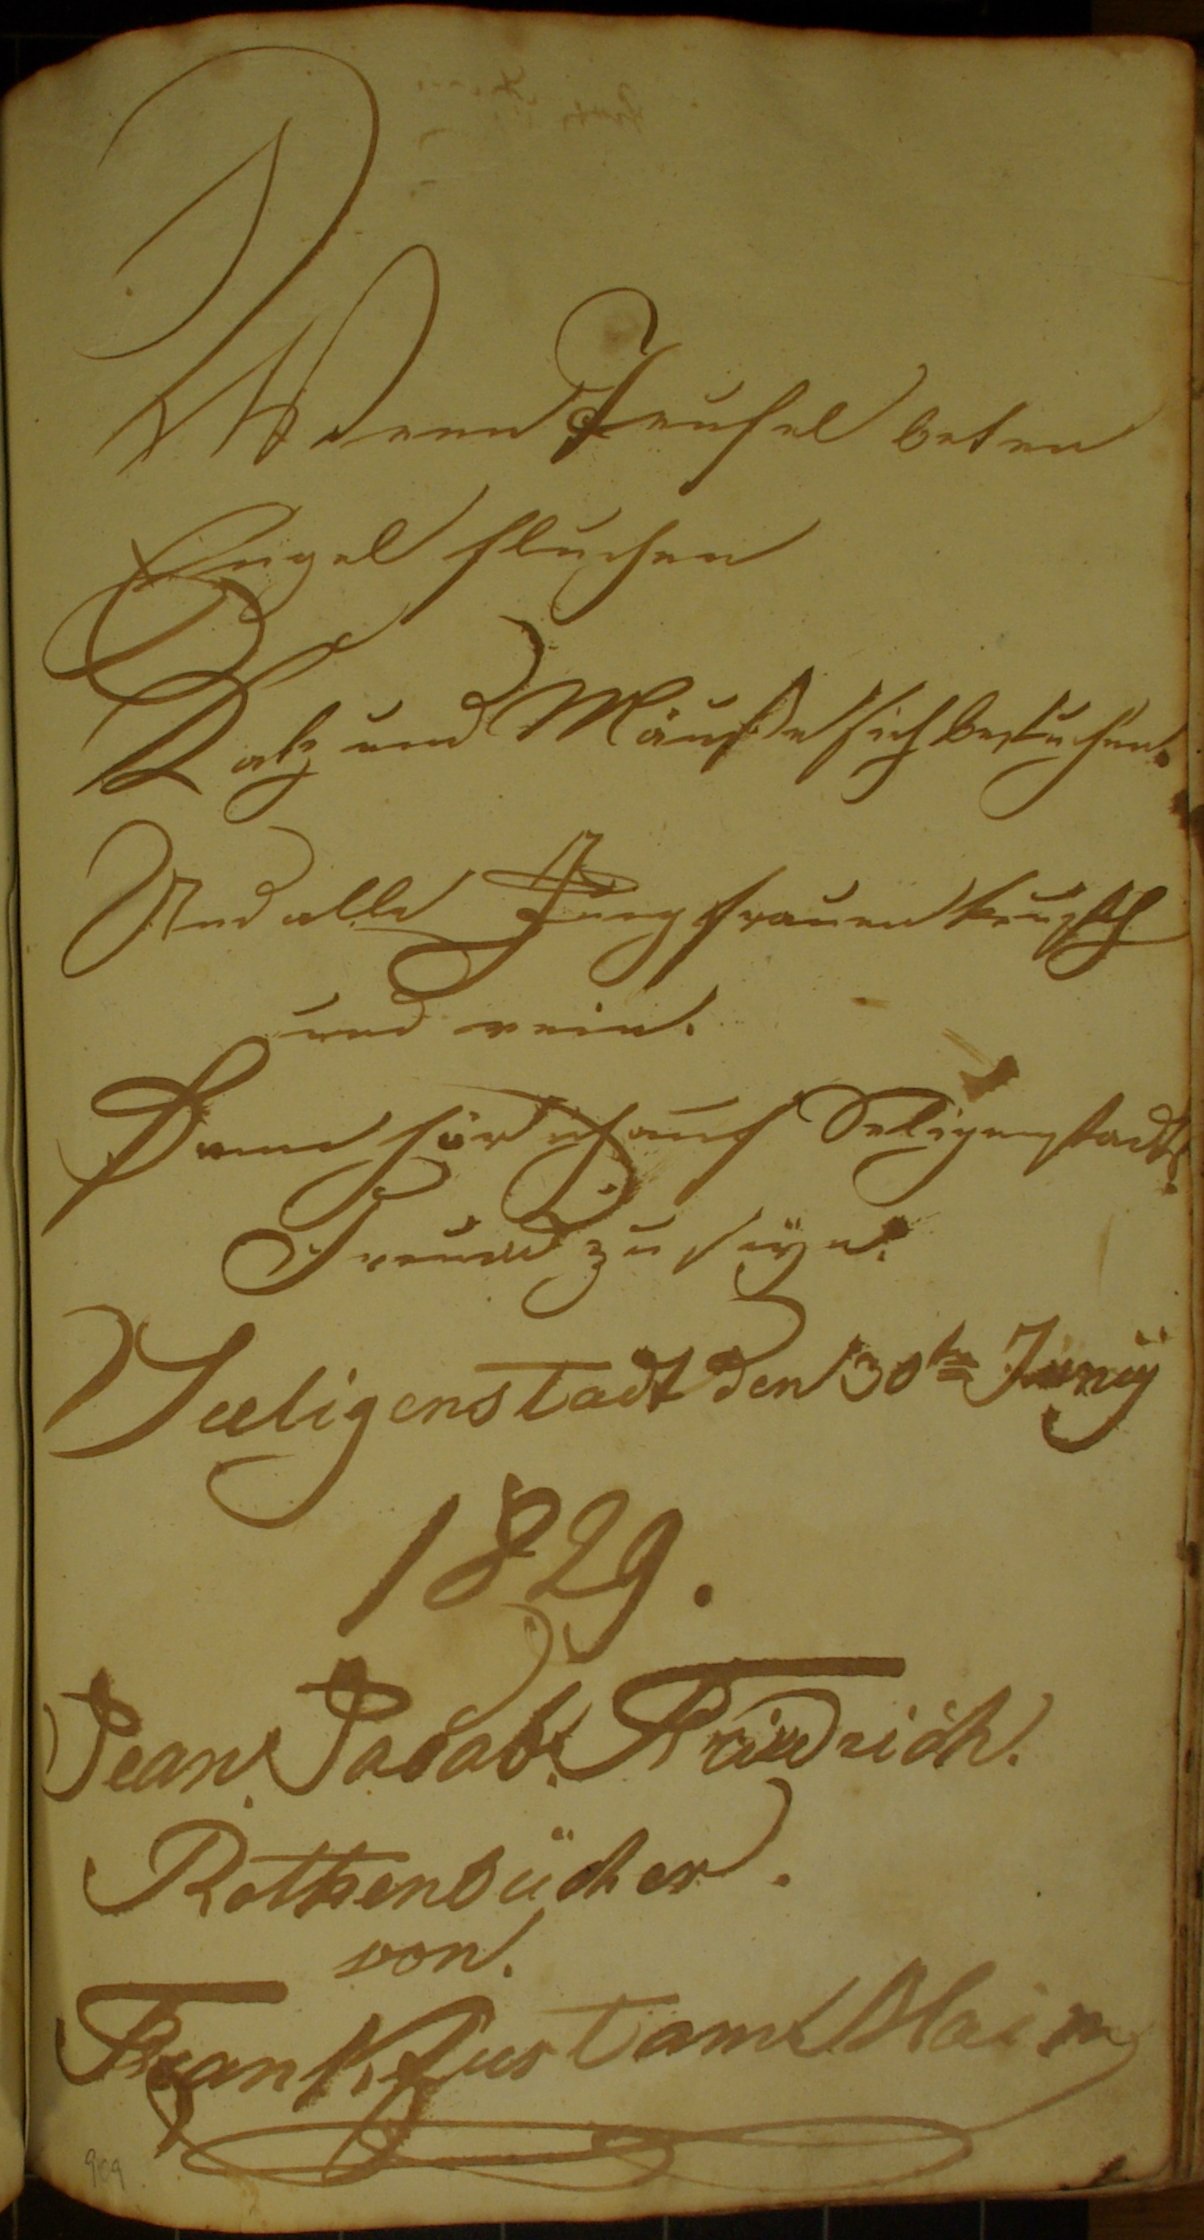 Wenn Teufel beten
Engel fluchen
Katz und Mäuße sich besuchen.
Und alle Jungfrauen keusch
und rein.
Dann hör ich auf Seligenstadts
Freund zu seyn.
Seeligenstadt den 30ten Junÿ
1829.
Jean. Jacob. Friedrich.
Rothenbücher.
von.
Frankfurt am Main
909